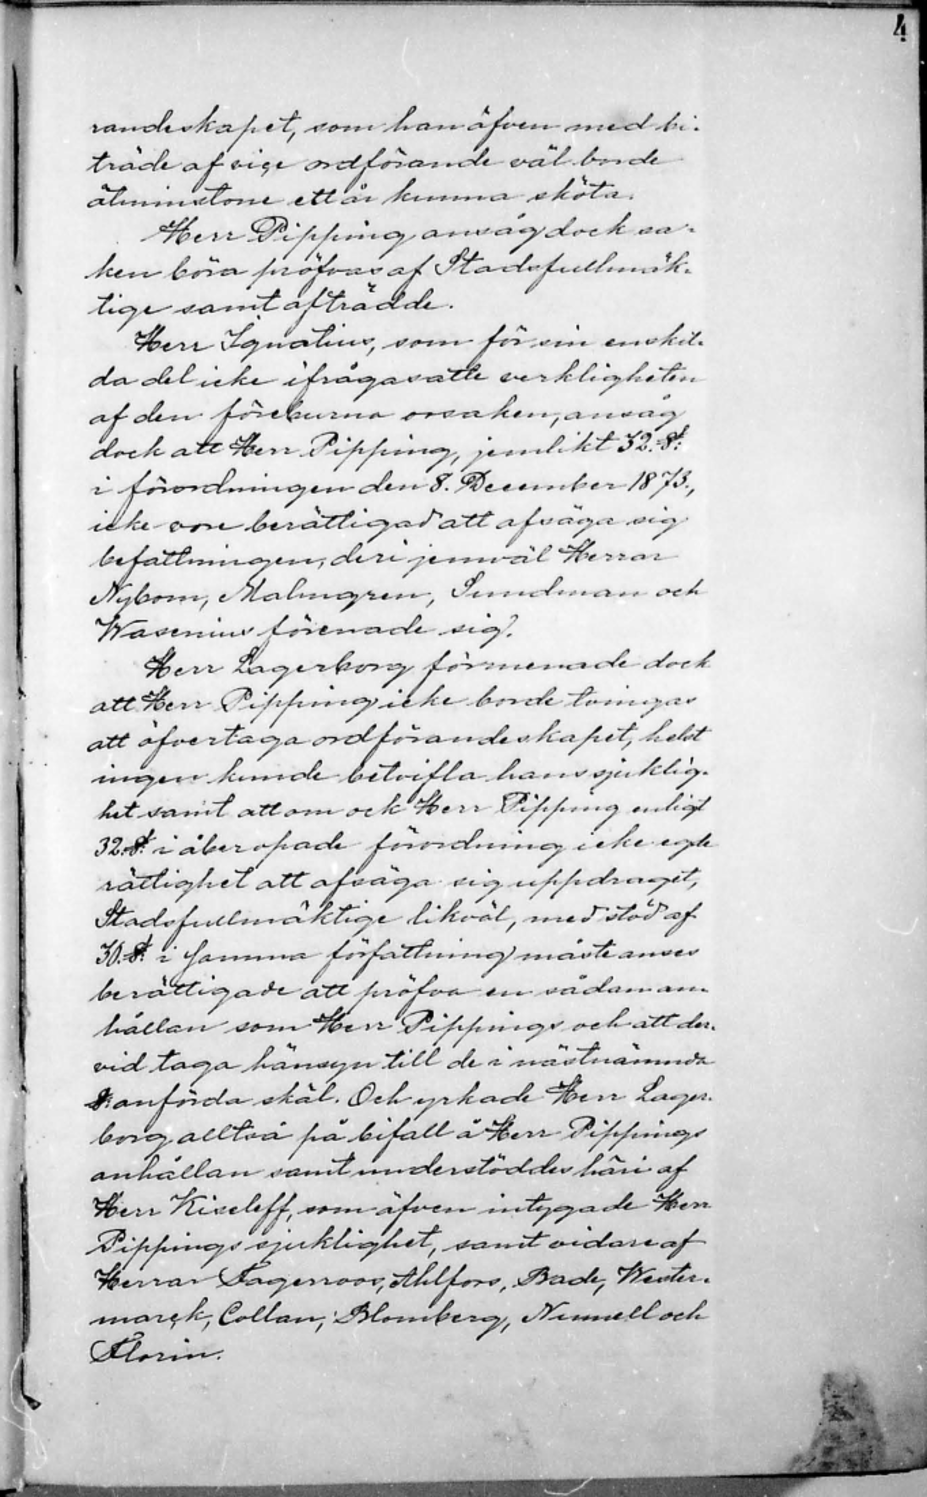 4
randeskapet, som han äfven med bi-
träde af vice ordförande väl borde
åtminstone ett år kunna sköta.
Herr Pipping ansåg dock sa-
ken böra pröfvas af Stadsfullmäk-
tige samt afträdde.
Herr Ignatius, som för sin enskil-
da del icke ifrågasatte verkligheten
af den föreburna orsaken, ansåg
dock att Herr Pipping, jemlikt 32. §.
i förordningen den 8. December 1873.,
icke vore berättigad att afsäga sig
befattningen, deri jemväl Herrar
Nybom, Malmgren, Sundman och
Wasenius förenade sig.
Herr Lagerborg förmenade dock
att Herr Pipping icke borde tvingas
att öfvertaga ordförandeskapet, helst
ingen kunde betvifla hans sjuklig-
het samt att om ock Herr Pipping enligt
32. §. i åberopade förordning icke egde
rättighet att afsäga sig uppdraget,
Stadsfullmäktige likväl, med stöd af
30. §. i samma författning måste anses
berättigade att pröfva en sådan an-
hållan som Herr Pippings och att der-
vid taga hänsyn till de i nästnämnda
§. anförda skäl. Och yrkade Herr Lager-
borg alltså på bifall å Herr Pippings
anhållan samt understöddes häri af
Herr Kiseleff, som äfven intygade Herr
Pippings sjuklighet, samt vidare af
Herrar Fagerroos, Ahlfors, Bade, Wester-
marck, Collan, Blomberg, Nummell och
Florin.